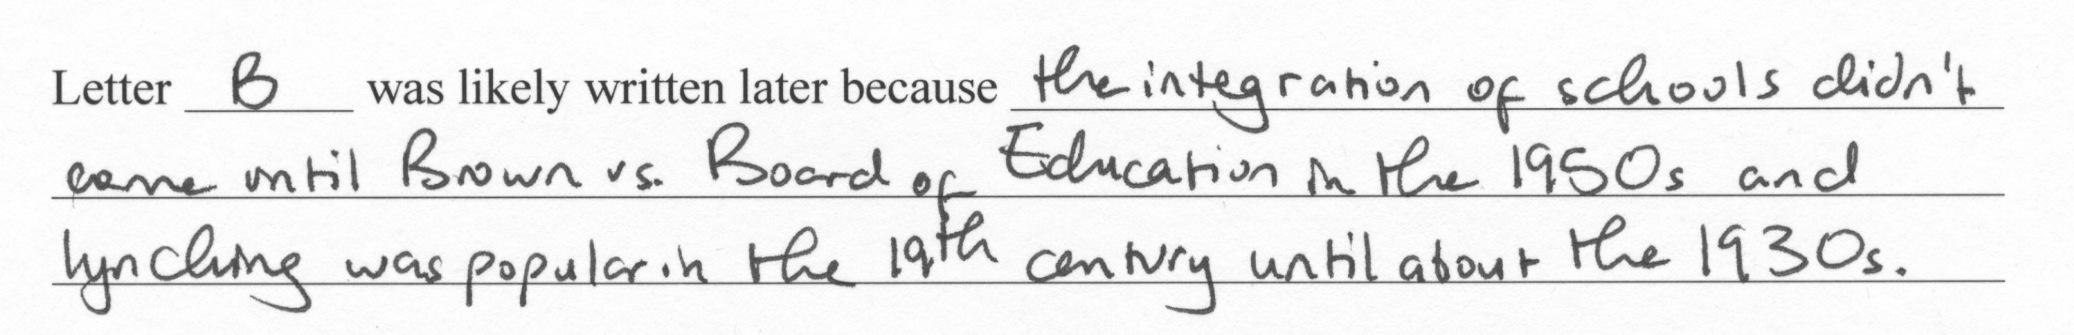 Letter B was likely written later because the integration of schools didn't
came until Brown vs. Board of Education in the 1950s and
lynching was popular in the 19th century until about the 1930s.